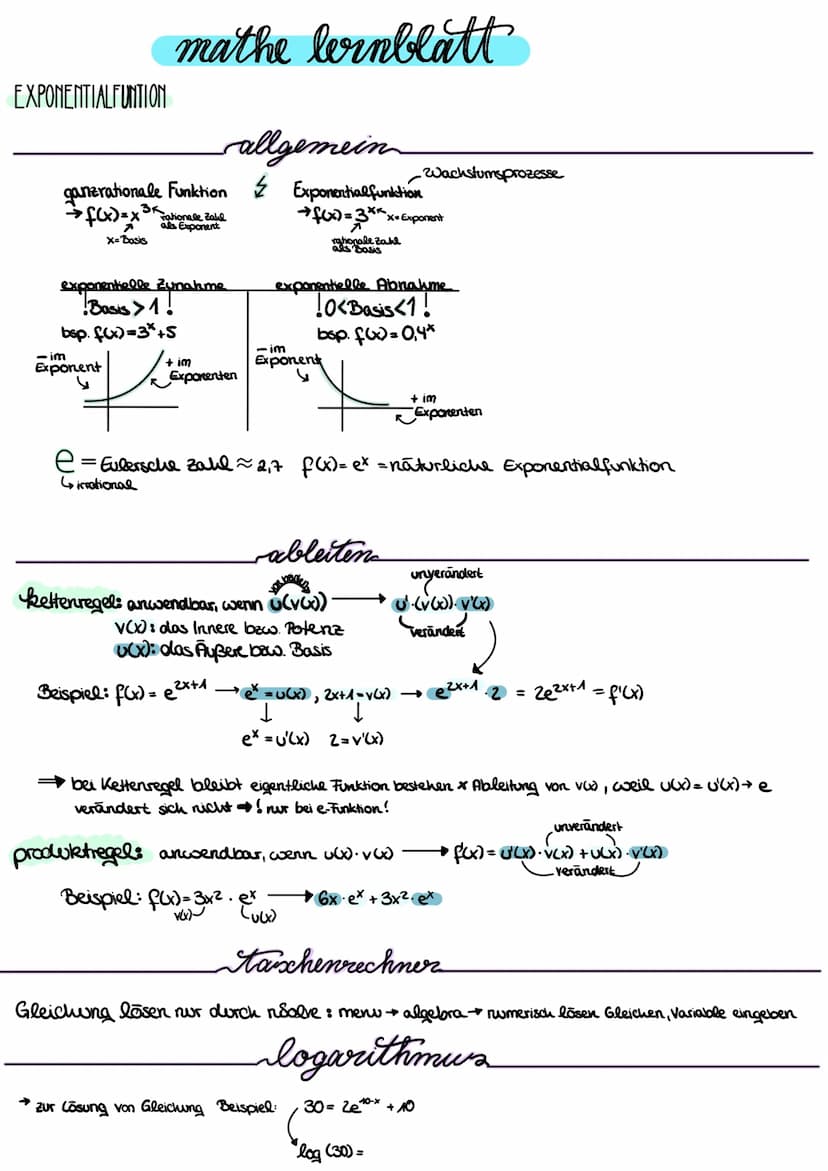 mathe lernblatt
EXPONENTIALFUNTION
allgemein
Wachstumsprozesse
ganzrationale Funktion ↯ Exponentialfunktion
→ f(x)=x³ rationale Zahl als Exponent
x=Basis
→ f(x)=3ˣ x=Exponent
rationale Zahl als Basis
exponentielle Zunahme
!Basis>1!
bsp. f(x)=3ˣ+5
– im Exponent
+ im Exponenten
exponentielle Abnahme
!0<Basis<1!
bsp. f(x)=0,4ˣ
– im Exponent
+ im Exponenten
e = Eulersche Zahl ≈ 2,7 f(x)= eˣ = natürliche Exponentialfunktion
↳ irrational
ableiten
unverändert
kettenregel: anwendbar, wenn u(v(x)) → u'·(v(x))·v'(x)
verändert
v(x): das Innere bzw. Potenz
u(x): das Äußere bzw. Basis
Beispiel: f(x) = e^(2x+1) → eˣ = u(x), 2x+1 = v(x) → e^(2x+1) · 2 = 2e^(2x+1) = f'(x)
↓ ↓
eˣ = u'(x) 2 = v'(x)
⇒ bei Kettenregel bleibt eigentliche Funktion bestehen × Ableitung von v(x), weil u(x) = u'(x) → e
verändert sich nicht → ! nur bei e-Funktion!
unverändert
produktregel: anwendbar, wenn u(x) · v(x) → f'(x) = u'(x) · v(x) + u(x) · v'(x)
verändert
Beispiel: f(x) = 3x² · eˣ → 6x · eˣ + 3x² · eˣ
v(x) u(x)
taschenrechner
Gleichung lösen nur durch nSolve: menu → algebra → numerisch lösen Gleichen, Variable eingeben
logarithmus
→ zur Lösung von Gleichung Beispiel: 30 = 2e^(10-x) + 10
log (30) =